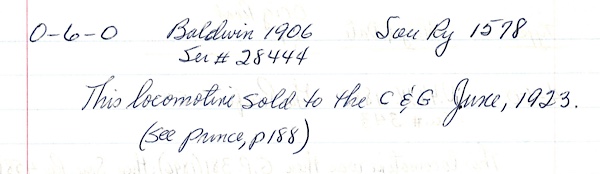 0-6-0 Baldwin 1906 Sou Ry 1578
Ser # 28444
This locomotive sold to the C & G June, 1923.
(See Prince, p188)